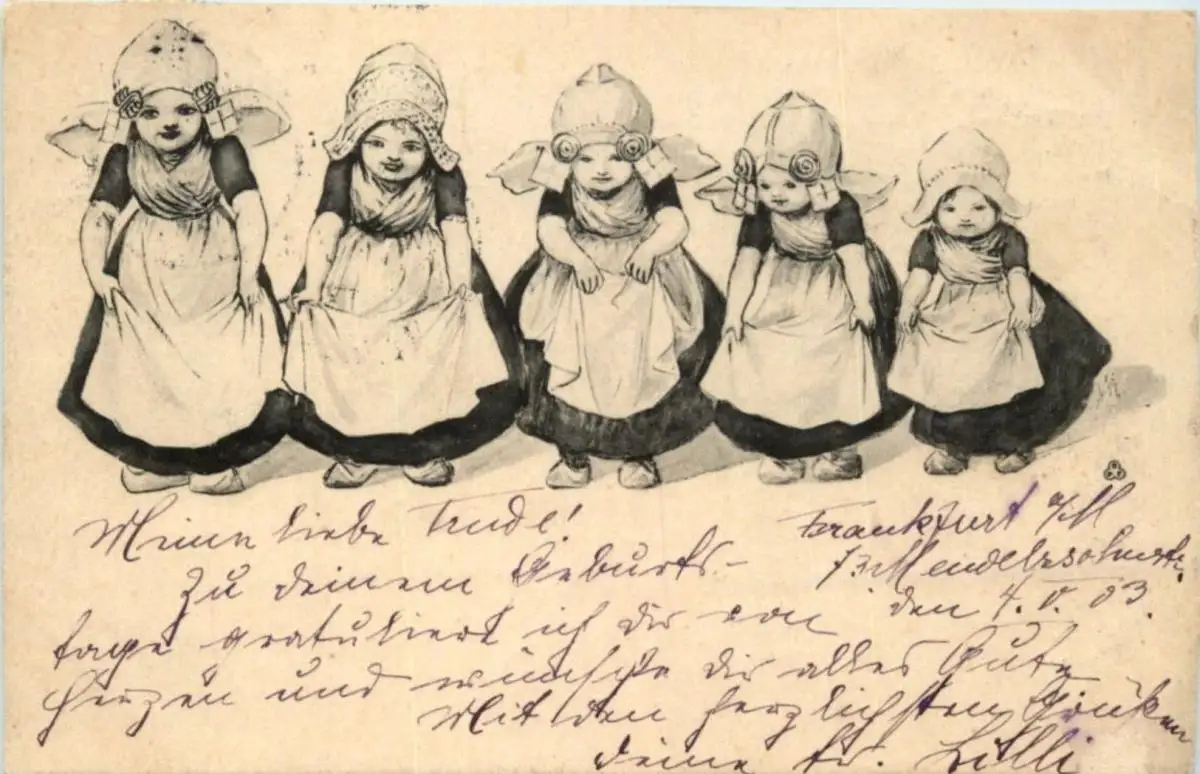 Meine liebe Trude!
Frankfurt a/M
Mendelssohnstr.
den 4. V. 03.
Zu deinem Geburts-
tage gratuliert ich dir von
Herzen und wünsche dir alles Gute
Mit den herzlichsten
deine Lilli